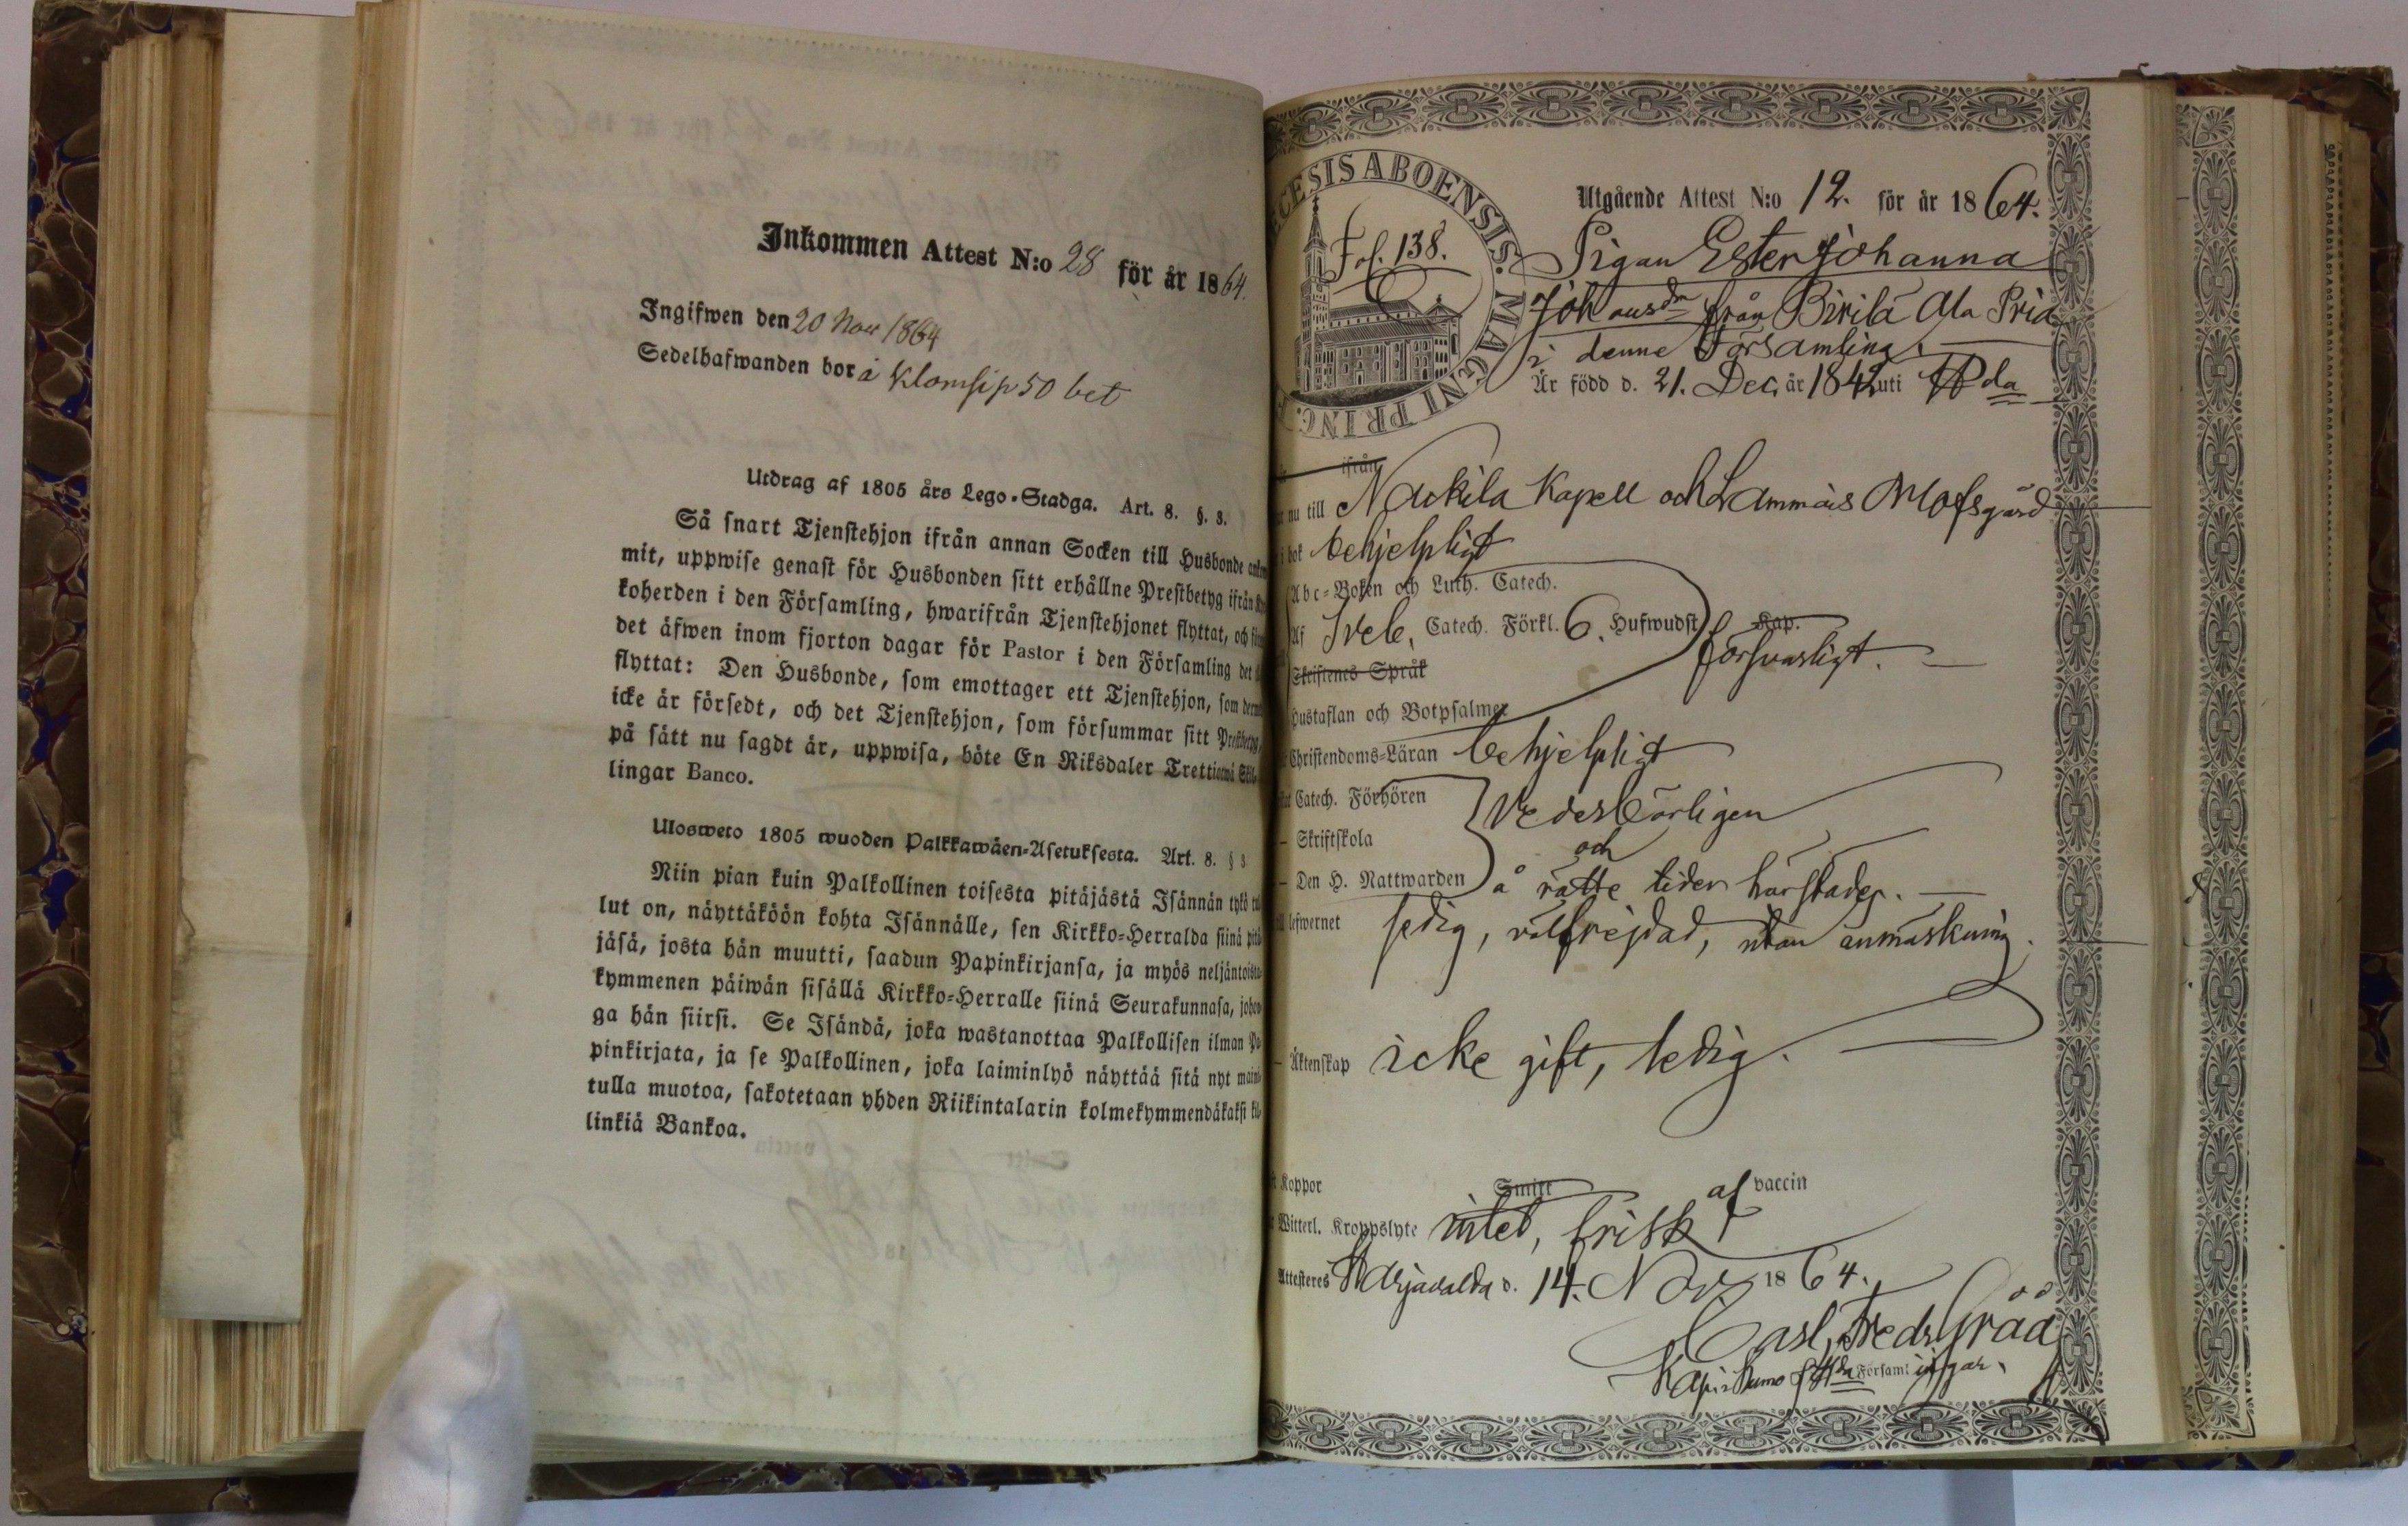 Inkommen Attest N:o 28 för år 1864.
Ingifwen den 20 Nov 1864
Sedelhafwanden bor å
Utdrag af 1805 års Lego-Stadga. Art. 8. §. 3.
Så snart Tjenstehjon ifrån annan Socken till Husbonde
mit, uppwise genast för Husbonden sitt erhållne Prestbetyg ifrån
koherden i den Församling, hwarifrån Tjenstehjonet flyttat, och
det äfwen inom fjorton dagar för Pastor i den Församling det
flyttat: Den Husbonde, som emottager ett Tjenstehjon, som
icke är försedt, och det Tjenstehjon, som försummar sitt Prestbetyg,
på sätt nu sagdt är, uppwisa, böte En Riksdaler Trettiotwå Skil-
lingar Banco.
Ulosweto 1805 wuoden Palkkawäen-Asetuksesta. Art. 8. § 3
Niin pian kuin Palkollinen toisesta pitäjästä Isännän tykö
lut on, näyttäköön kohta Isännälle, sen Kirkko-Herralda siinä
jäsä, josta hän muutti, saadun Papinkirjansa, ja myös neljäntoista-
kymmenen päiwän sisällä Kirkko-Herralle siinä Seurakunnasa, johon-
ga hän siirsi. Se Isändä, joka wastanottaa Palkollisen ilman Pa-
pinkirjata, ja se Palkollinen, joka laiminlyö näyttää sitä nyt
tulla muotoa, sakotetaan yhden Riikintalarin kolmekymmendäkaksi
linkiä Bankoa.
CESIS ABOENSIS. MAGNI PRINC.
Fol. 138.
Utgående Attest N:o 12. för år 1864.
Pigan Ester Johanna
Johansdr från Birila Ala Pria
i denne Församling.
Är född d. 21. Dec. år 1842 uti Hda
ifrån
nu till Nackila Kapell och Lammais Mofsgård
i bok behjelpligt
Abc-Boken och Luth. Catech.
Af Sveb. Catech. Förkl. 6. Hufwudst Kap.
försvarligt.
Skriftenes Språk
Hustaflan och Botpsalmer
Christendoms-Läran behjelpligt
Catech. Förhören
Vederbörligen
Skriftskola
och
Den H. Nattwarden å rätte tider härstädes.
lefwernet sedig, välfrejdad, utan anmärkning.
Äktenskap icke gift, ledig.
Koppor Smitt af vaccin
Witterl. Kroppslyte intet, frisk
Attesteres Harjavalda d. 14. Nov. 1864.
Carl Fredr Gråå
Kap. i Kumo o Hda Församlingar.